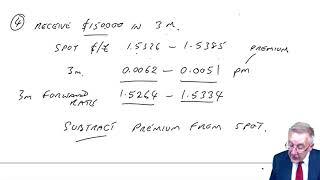 ④ RECEIVE $150000 IN 3 M.
SPOT $/£ 1.5326 – 1.5385
PREMIUM
3m. 0.0062 – 0.0051 pm
3m FORWARD RATE 1.5264 – 1.5334
SUBTRACT PREMIUM FROM SPOT.